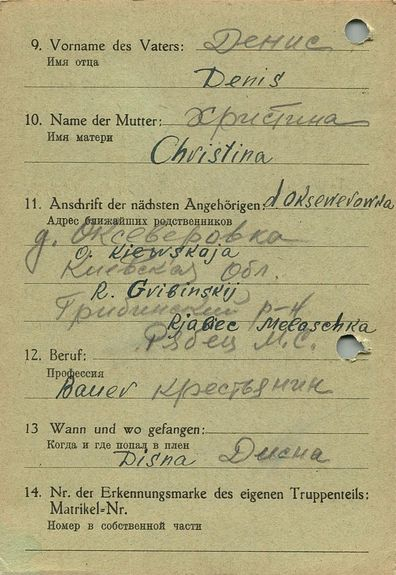 9. Vorname des Vaters: Денис
Имя отца
Denis
10. Name der Mutter: Христина
Имя матери
Christina
11. Anschrift der nächsten Angehörigen: d Oksewerowka
Адрес ближайших родственников
д. Оксеверовка
O. Kiewskaja
Киевская Обл.
R. Gribinskij
Грибинский р-н
Rjabec Melaschka
Рябец М.С.
12. Beruf:
Профессия
Bauer Крестьянин
13 Wann und wo gefangen:
Когда и где попал в плен
Disna Дисна
14. Nr. der Erkennungsmarke des eigenen Truppenteils:
Matrikel=Nr.
Номер в собственной части